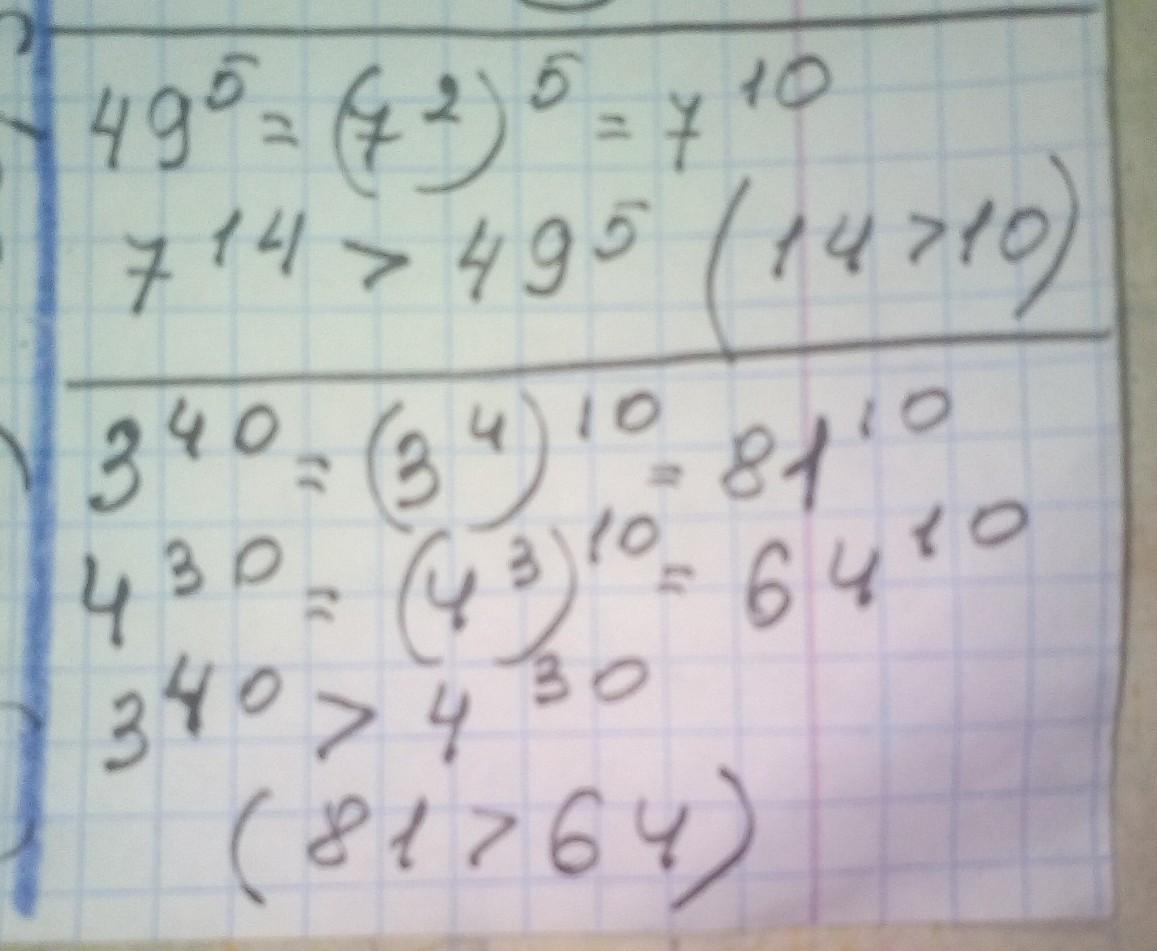 49⁵ = (7²)⁵ = 7¹⁰
7¹⁴ > 49⁵ (14 > 10)
3⁴⁰ = (3⁴)¹⁰ = 81¹⁰
4³⁰ = (4³)¹⁰ = 64¹⁰
3⁴⁰ > 4³⁰
(81 > 64)